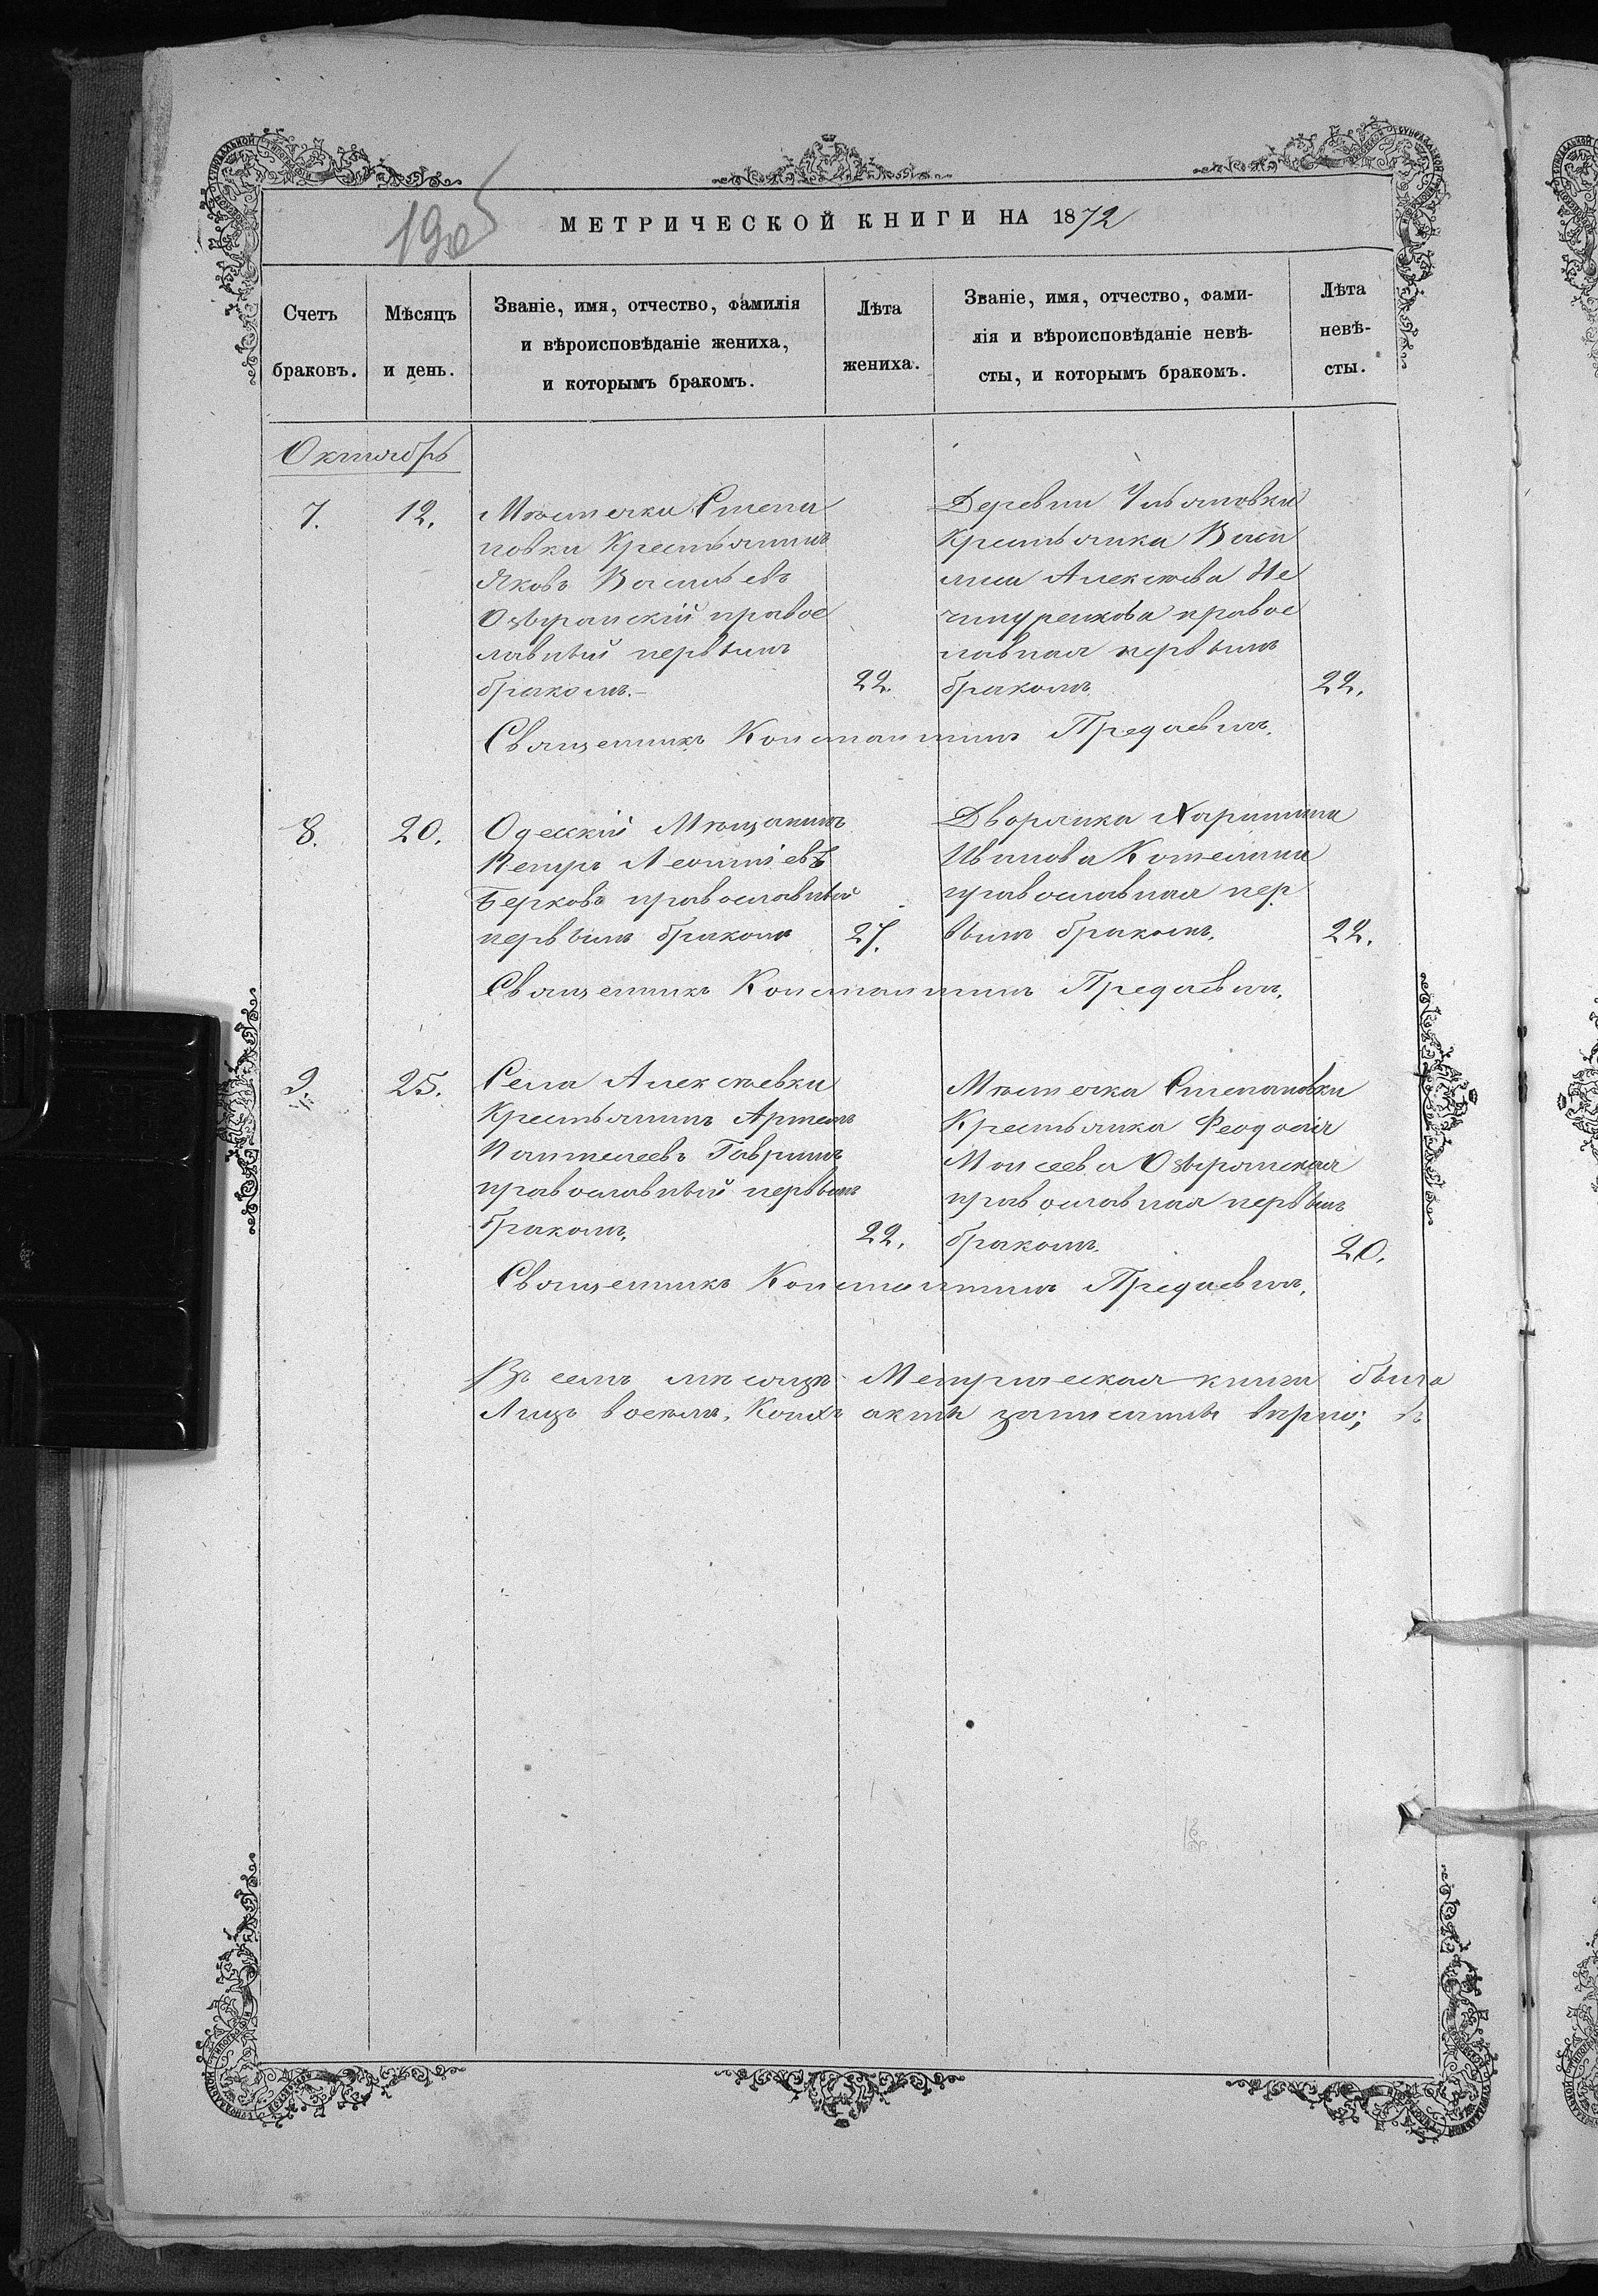 МЕТРИЧЕСКОЙ КНИГИ НА 1872
Счетъ браковъ.
Мѣсяцъ и день.
Званіе, имя, отчество, фамилія
и вѣроисповѣданіе жениха,
и которымъ бракомъ.
Лѣта
жениха.
Званіе, имя, отчество, фами-
лія и вѣроисповѣданіе невѣ-
сты, и которымъ бракомъ.
Лѣта
невѣ-
сты.
Октябрь
7. 12.
Мѣстечка Степа
новки Крестьянинъ
Яковъ Васильевъ
Озѣранскій правос
лавный первымъ
бракомъ.- 22.
Деревни Ульяновки
Крестьянка Васи
лиса Алексѣева Не
правос
лавная первымъ
бракомъ. 22.
Священникъ Константинъ Предаевичъ.
8. 20.
Одесскій Мѣщанинъ
Петръ Леонтіевъ
Берковъ православный
первымъ бракомъ 27.
Дворянка Харитина
Иванова
православная пер
вымъ бракомъ. 22.
Священникъ Константинъ Предаевичъ.
9. 25.
Села Алексѣевки
Крестьянинъ Артемъ
Пантелеевъ Гавришъ
православный первымъ
бракомъ. 22.
Мѣстечка Степановки
Крестьянка Феодосія
Моисеева Озѣранская
православная первымъ
бракомъ. 20.
Священникъ Константинъ Предаевичъ.
Въ семъ мѣсяцѣ Метрическая книга была
акты записаны вѣрно; въ